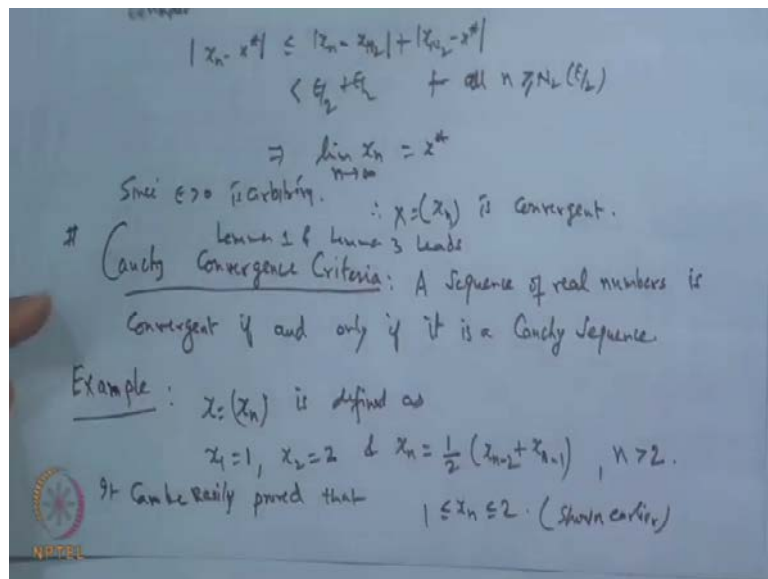 |xₙ - x*| ≤ |xₙ - x_{N₂}| + |x_{N₂} - x*|
< ε/2 + ε/2 for all n ≥ N₂(ε/2)
⇒ lim_{n→∞} xₙ = x*
Since ε>0 is arbitrary. ∴ X=(xₙ) is Convergent.
# Lemma 1 & Lemma 3 leads
Cauchy Convergence Criteria: A Sequence of real numbers is
Convergent if and only if it is a Cauchy Sequence.
Example: X=(xₙ) is defined as
x₁=1, x₂=2 & xₙ = 1/2 (xₙ₋₂ + xₙ₋₁), n>2.
It Can be easily proved that 1 ≤ xₙ ≤ 2. (Shown earlier)
NPTEL